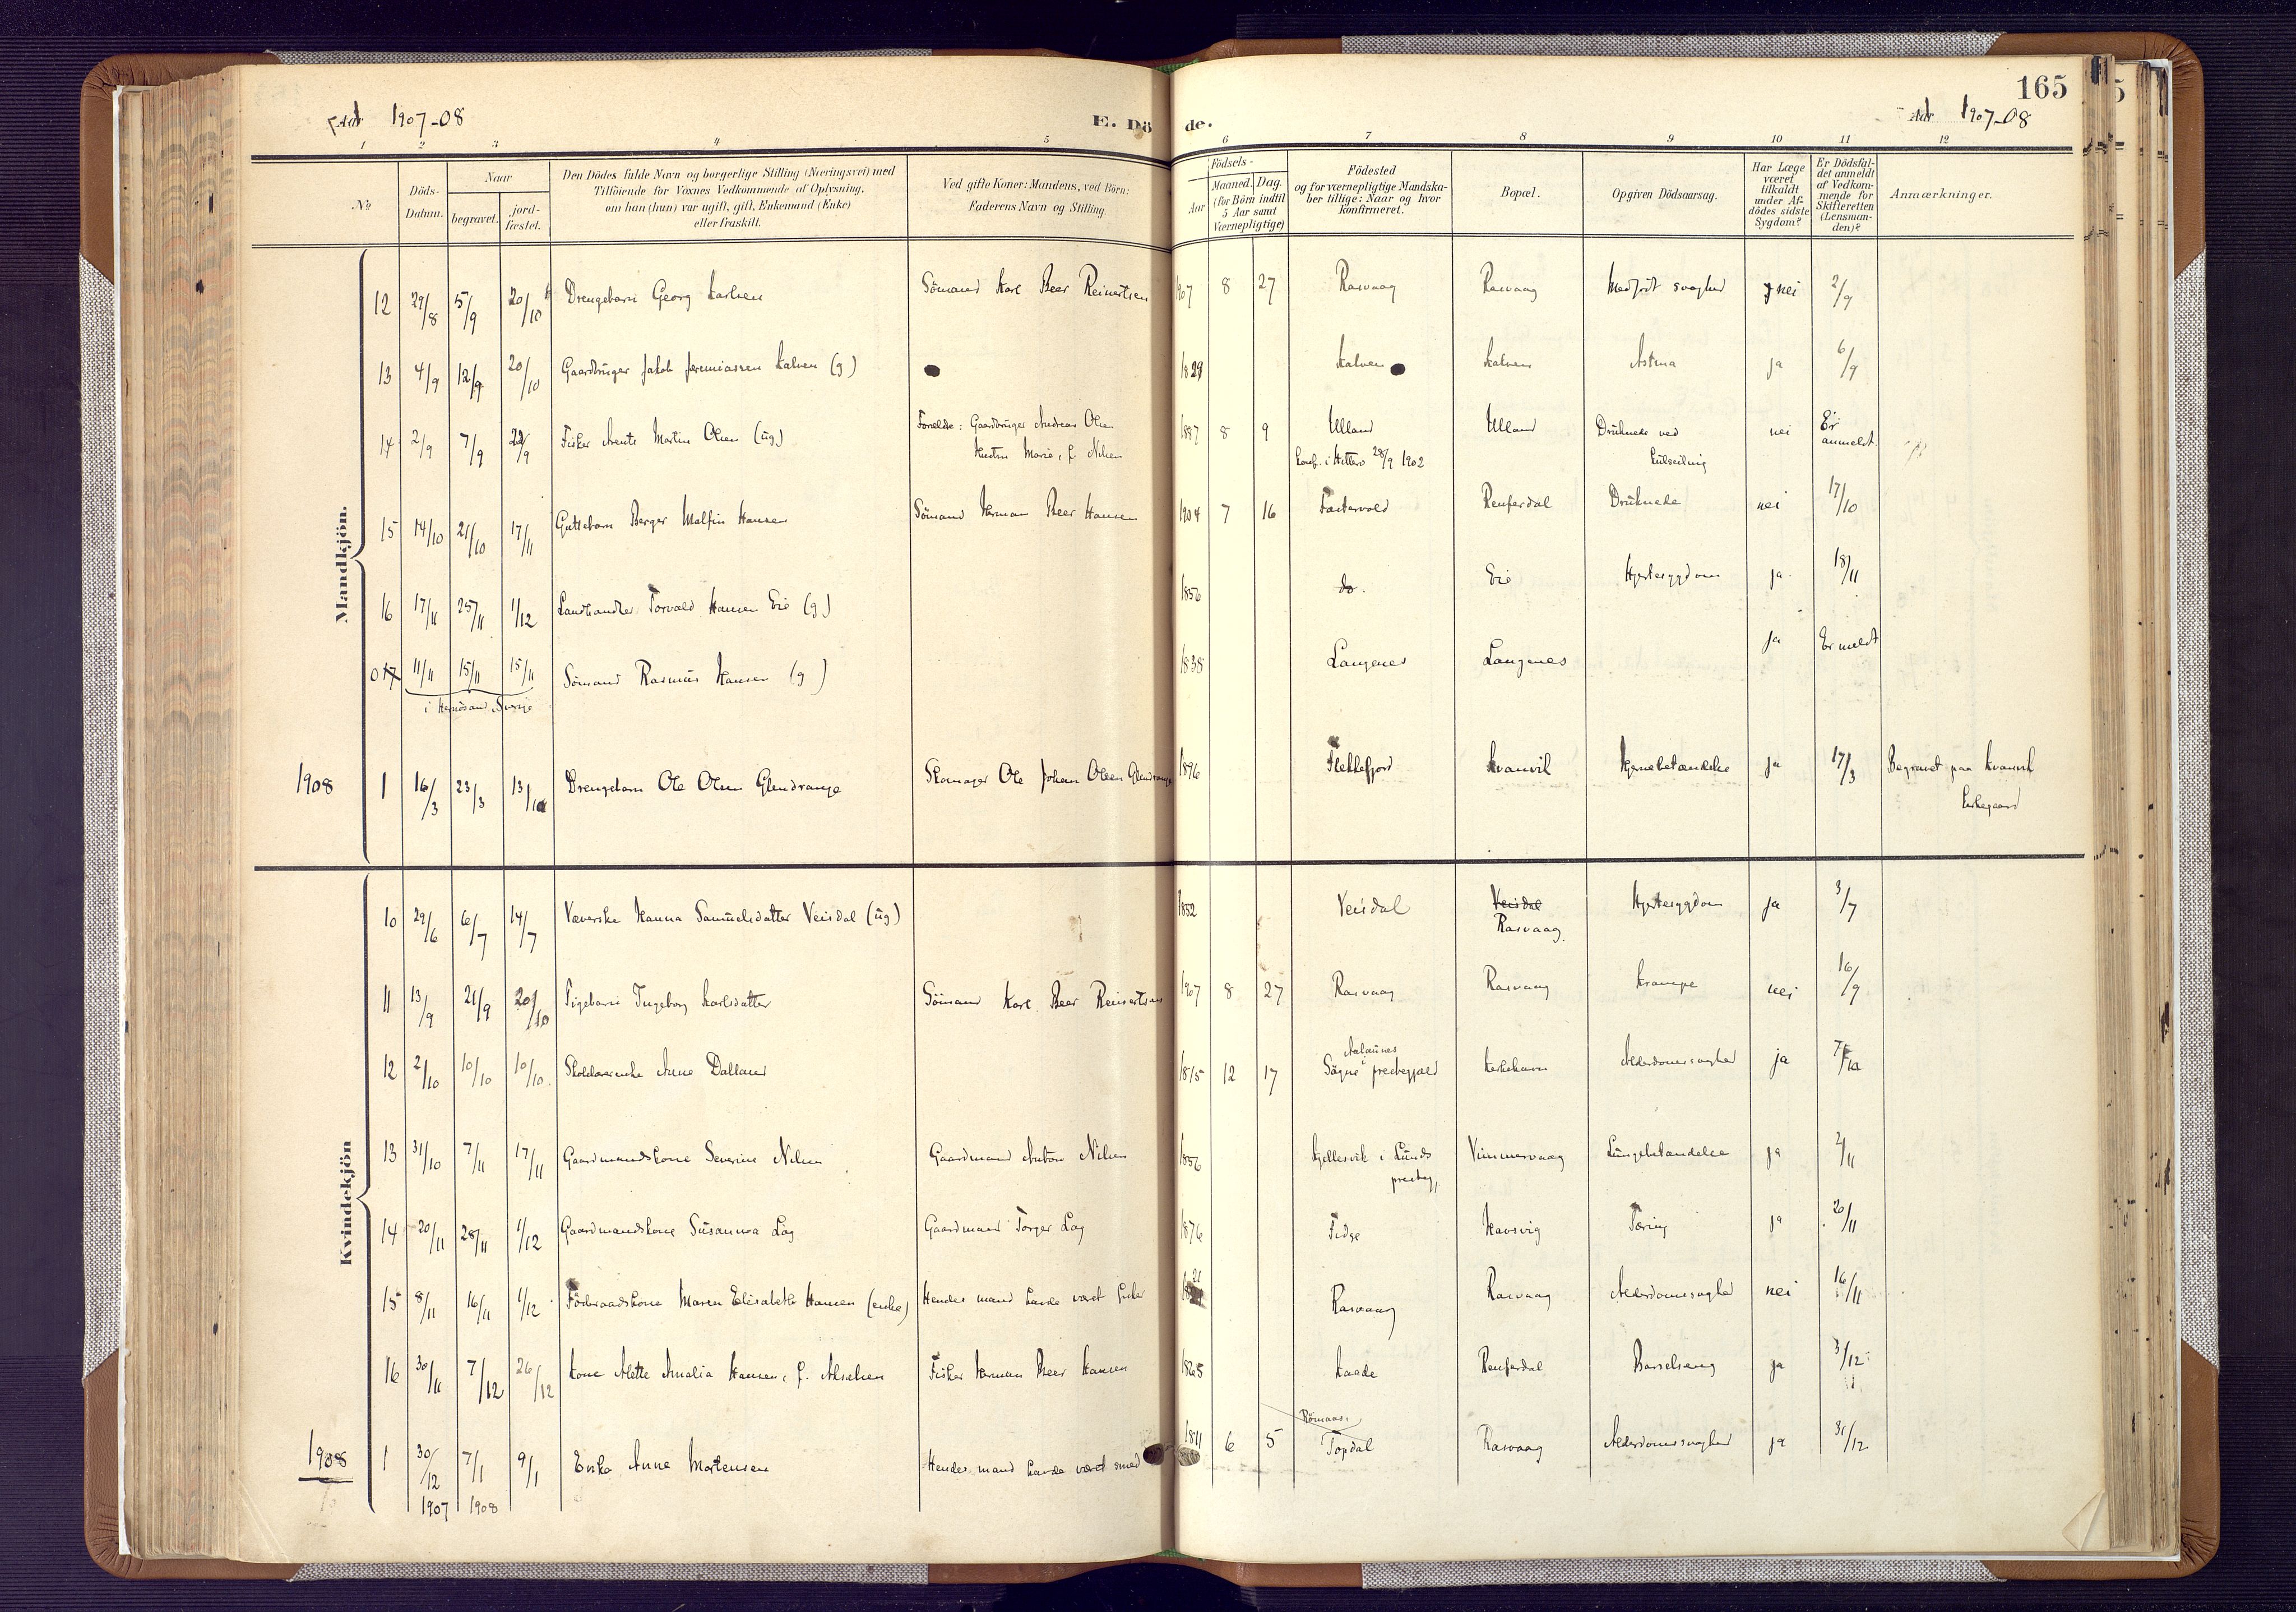 165
Aar 1907-08
E. Döde.
Aar 1907-08
1 2 3 4 5 6 7 8 9 10 11 12
No.
Döds-Datum.
Naar
begravet.
jord-fæstet.
Den Dödes fulde Navn og borgerlige Stilling (Næringsvei) med
Tilföiende for Voxnes Vedkommende af Oplysning,
om han (hun) var ugift, gift, Enkemand (Enke)
eller fraskilt.
Ved gifte Koner: Mandens, ved Börn:
Faderens Navn og Stilling.
Födsels-
Aar
Maaned. Dag.
(for Börn indtil
5 Aar samt
Værnepligtige)
Födested
og for værnepligtige Mandska-
ber tillige: Naar og hvor
konfirmeret.
Bopæl.
Opgiven Dödsaarsag.
Har Læge
været
tilkaldt
under Af-
dödes sidste
Sygdom?
Er Dödsfal-
det anmeldt
af Vedkom-
mende for
Skifteretten
(Lensman-
den)?
Anmærkninger.
Mandkjön.
12 29/8 5/9 20/10 Drengebarn Georg Karlsen Sömand Karl Beer Reinertsen 1907 8 27 Rasvaag Rasvaag Medfödt svaghed nei 2/9
13 4/9 12/9 20/10 Gaardbruger Jakob Jeremiassen Kalven (g) 1829 Kalven Kalven Astma ja 6/9
14 2/9 7/9 22/9 Fisker Arents Martin Olsen (ug.) Forældre: Gaardbruger Andreas Olsen 1887 8 9 Ulland Ulland Druknede ved nei Er anmeldt.
Hustru Marie, f. Nilsen Konf. i Hitterö 28/9 1902 kulseiling
15 14/10 21/10 17/11 Guttebarn Berger Malfin Hansen Sömand Herman Beer Hansen 1904 7 16 Fastervold Renferdal Druknede nei 17/10
16 17/11 25/11 1/12 Landhandler Torvald Hansen Eie (g) 1856 do. Eie Hjertesygdom ja 18/11
017 11/11 15/11 15/11 Sömand Rasmus Hansen (g) 1838 Langenes Langenes ja Er meldt
i Hernösand, Sverige
1908 1 16/3 23/3 13/10 Drengebarn Ole Olsen Glendrange Skomager Ole Johan Olsen Glendrange 1896 Flekkefjord Kvanvik Hjernebetændelse ja 17/3 Begravet paa Kvanvik
kirkegaard
Kvindekjön
10 29/6 6/7 14/7 Væverske Hanna Samuelsdatter Veisdal (ug) 1852 Veisdal Veisdal Hjertesygdom ja 3/7
Rasvaag.
11 13/9 21/9 20/10 Pigebarn Ingeborg Karlsdatter Sömand Karl Beer Reinertsen 1907 8 27 Rasvaag Rasvaag Krampe nei 16/9
12 2/10 10/10 10/10. Skolelærerenke Anne Dalland 1815 12 17 Aalaunes i
Søgne prestegjæld Kirkehavn Alderdomssvaghed ja 7/10
13 31/10 7/11 17/11 Gaardmandskone Severine Nilsen Gaardmand Anton Nilsen 1856 Kjellesvik i Lunds Vimmersvaag Lungebetændelse ja 2/11
prestegj.
14 20/11 28/11 1/12 Gaardmandskone Susanna Log Gaardmand Torger Log 1876 Fidse Kavsvig Tæring ja 20/11
15 8/11 16/11 1/12 Föderaadskone Maren Elisabeth Hansen (enke) Hendes mand havde været fisker 21 Rasvaag Rasvaag Alderdomssvaghed nei 16/11
16 30/11 7/12 26/12 Kone Alette Amalia Hansen, f. Akselsen Fisker Herman Beer Hansen 1865 Kaade Renferdal Barselseng ja 3/12
1908 1 30/12 7/1 9/1 Enke Anne Mortensen Hendes mand havde været smed 1811 6 5 Rømaas.
Topdal Rasvaag Alderdomssvaghed ja 31/12
1907 1908